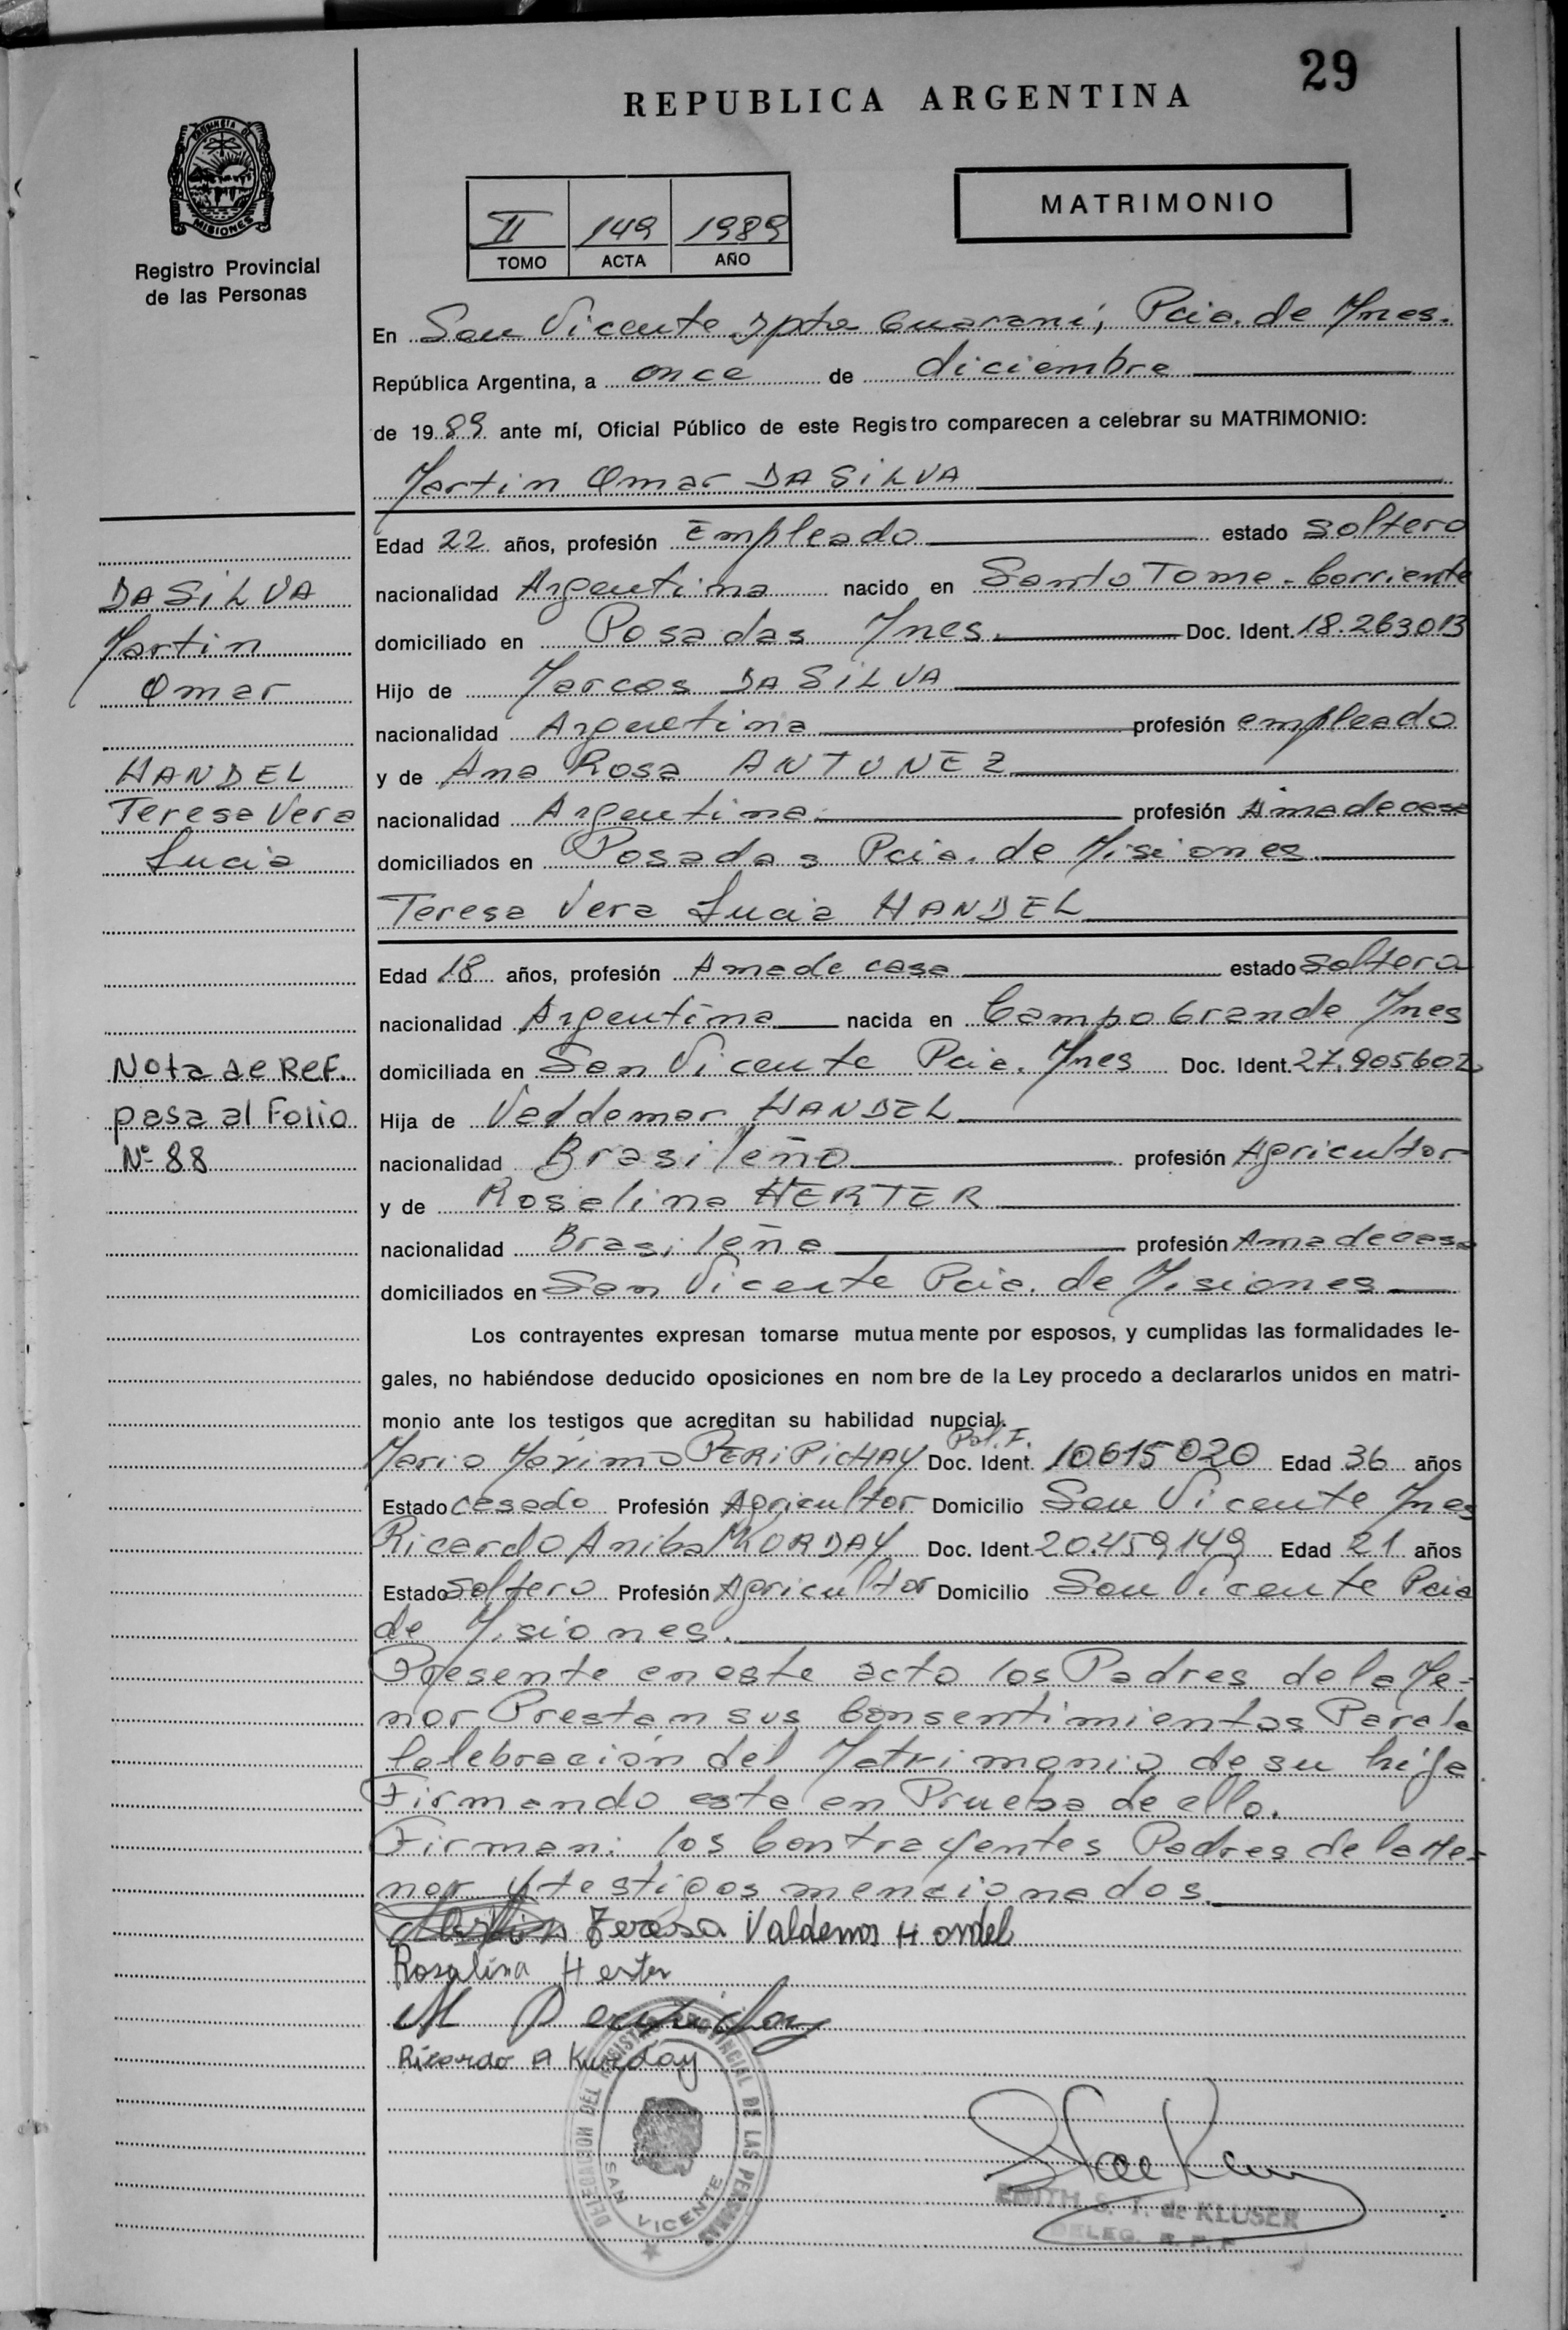 29
REPUBLICA ARGENTINA
PROVINCIA DE MISIONES
Registro Provincial
de las Personas
II 149 1989
TOMO ACTA AÑO
MATRIMONIO
En San Vicente Dpto Guaraní, Pcia. de Mnes.
República Argentina, a once de diciembre
de 1989 ante mí, Oficial Público de este Registro comparecen a celebrar su MATRIMONIO:
Martin Omar DA SILVA
Edad 22 años, profesión Empleado estado soltero
nacionalidad Argentina nacido en Santo Tome - Corriente
domiciliado en Posadas Mnes. Doc. Ident. 18.263.013
Hijo de Marcos DA SILVA
nacionalidad Argentina profesión empleado
y de Ana Rosa ANTUNEZ
nacionalidad Argentina profesión Amadecasa
domiciliados en Posadas Pcia. de Misiones
Teresa Vera Lucia HANDEL
Edad 18 años, profesión Amade casa estado soltera
nacionalidad Argentina nacida en Campo Grande Mnes
domiciliada en San Vicente Pcia. Mnes Doc. Ident. 27.905602
Hija de Valdemar HANDEL
nacionalidad Brasileño profesión Agricultor
y de Rosalina HERTER
nacionalidad Brasileña profesión Amadecasa
domiciliados en San Vicente Pcia. de Misiones
Los contrayentes expresan tomarse mutuamente por esposos, y cumplidas las formalidades le-
gales, no habiéndose deducido oposiciones en nombre de la Ley procedo a declararlos unidos en matri-
monio ante los testigos que acreditan su habilidad nupcial.
Pol. F.
Mario Maximo PERIPICHAY Doc. Ident. 10615020 Edad 36 años
Estado casado Profesión Agricultor Domicilio San Vicente Mnes
Ricardo Anibal KURDAY Doc. Ident 20.459,149 Edad 21 años
Estado soltero Profesión Agricultor Domicilio San Vicente Pcia
de Misiones.
Presente en este acto los Padres de la Me-
nor Prestan sus Consentimientos Para la
Celebración del Matrimonio de su hija
Firmando esta en Prueba de ello.
Firman: los Contrayentes Padres de la Me-
nor y testigos mencionados
Martin Teresa Valdemar Handel
Rosalina Herter
M Peripichay
Ricardo A Kurday
DELEGACION DEL REGISTRO PROVINCIAL DE LAS PERSONAS
SAN VICENTE
EDITH S. T. de KLUSER
DELEG. R. P. P.
DA SILVA
Martin
Omar
HANDEL
Teresa Vera
Lucia
Nota de Ref.
pasa al Folio
Nº 88